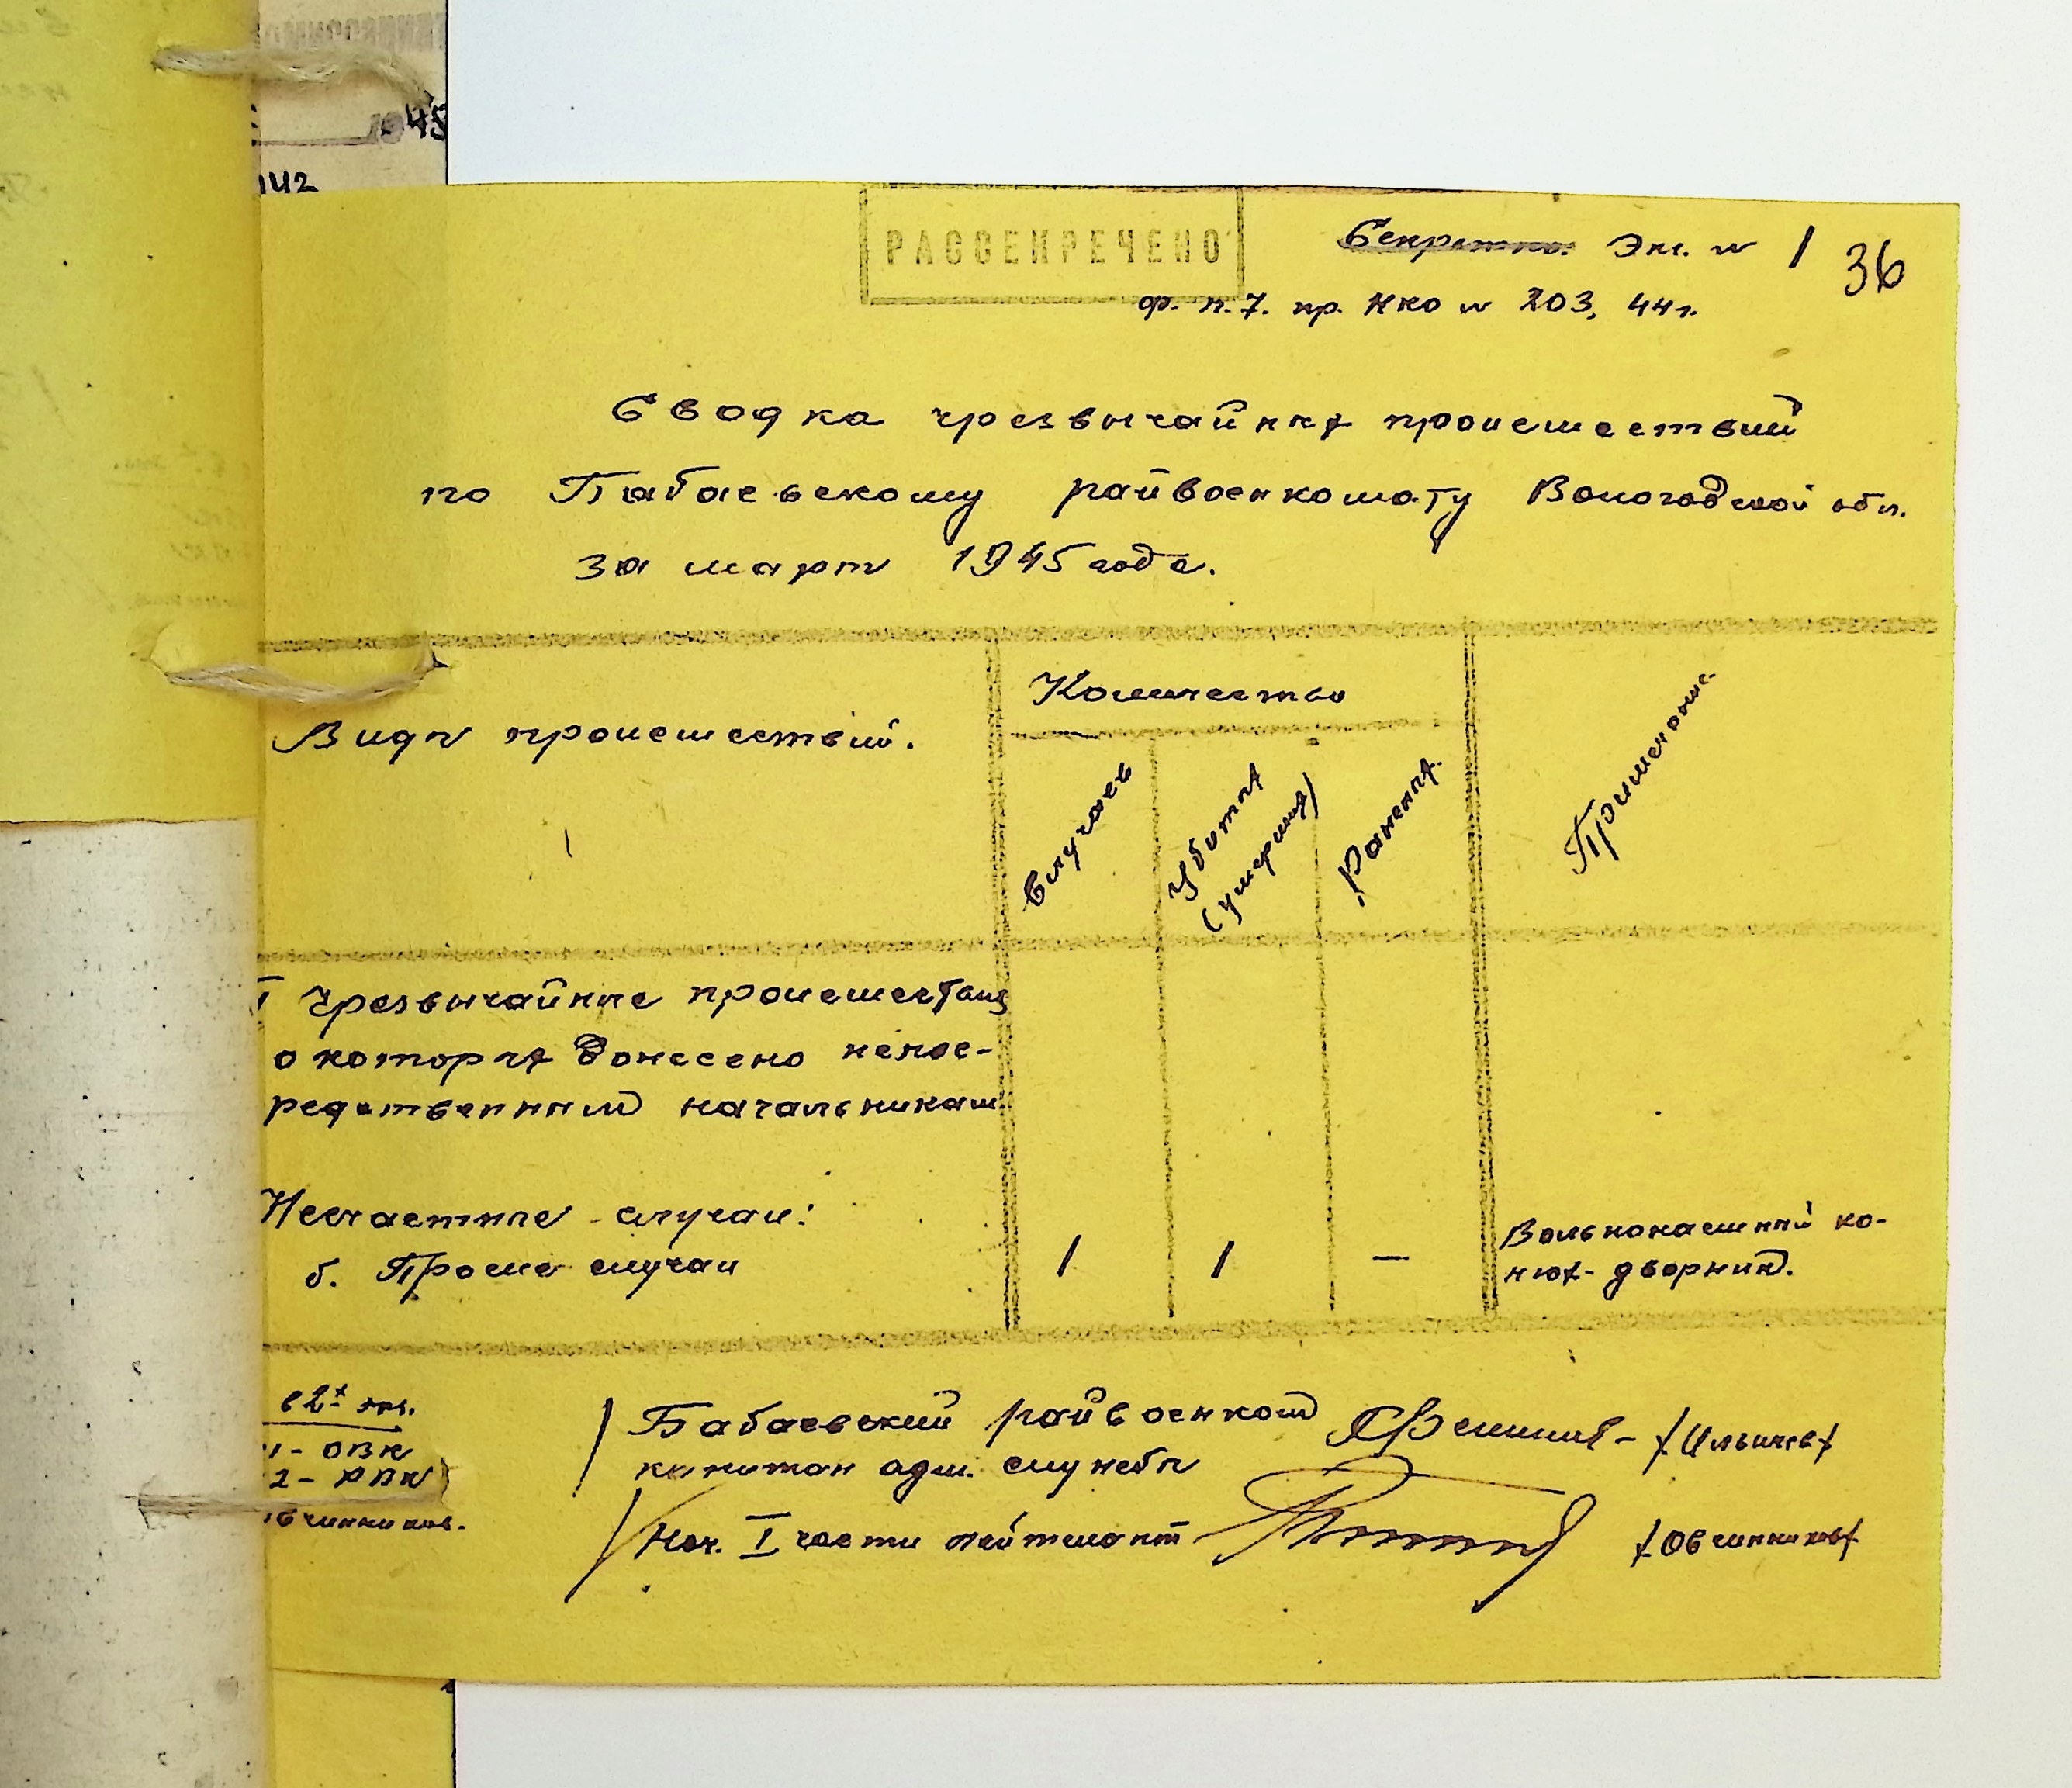 1945
РАССЕКРЕЧЕНО
Секретно. Экз. № 1
36
ф. п. 7. пр. НКО № 203, 44 г.
Сводка чрезвычайных происшествий
по Бабаевскому райвоенкомату Вологодской обл.
за март 1945 года.
Виды происшествий.
Количество
Случаев
Убитых
(умерших)
Раненых.
Примечание
I Чрезвычайные происшествия
о которых донесено непос-
редственным начальникам
Несчастные случаи:
б. Прочие случаи
1
1
—
Вольнонаемный ко-
нюх-дворник.
в 2х экз.
1 - ОВК
2 - РВК
Овчинников.
Бабаевский райвоенком
/Ильичев/
капитан адм. службы
Нач. I части лейтенант
/Овчинников/